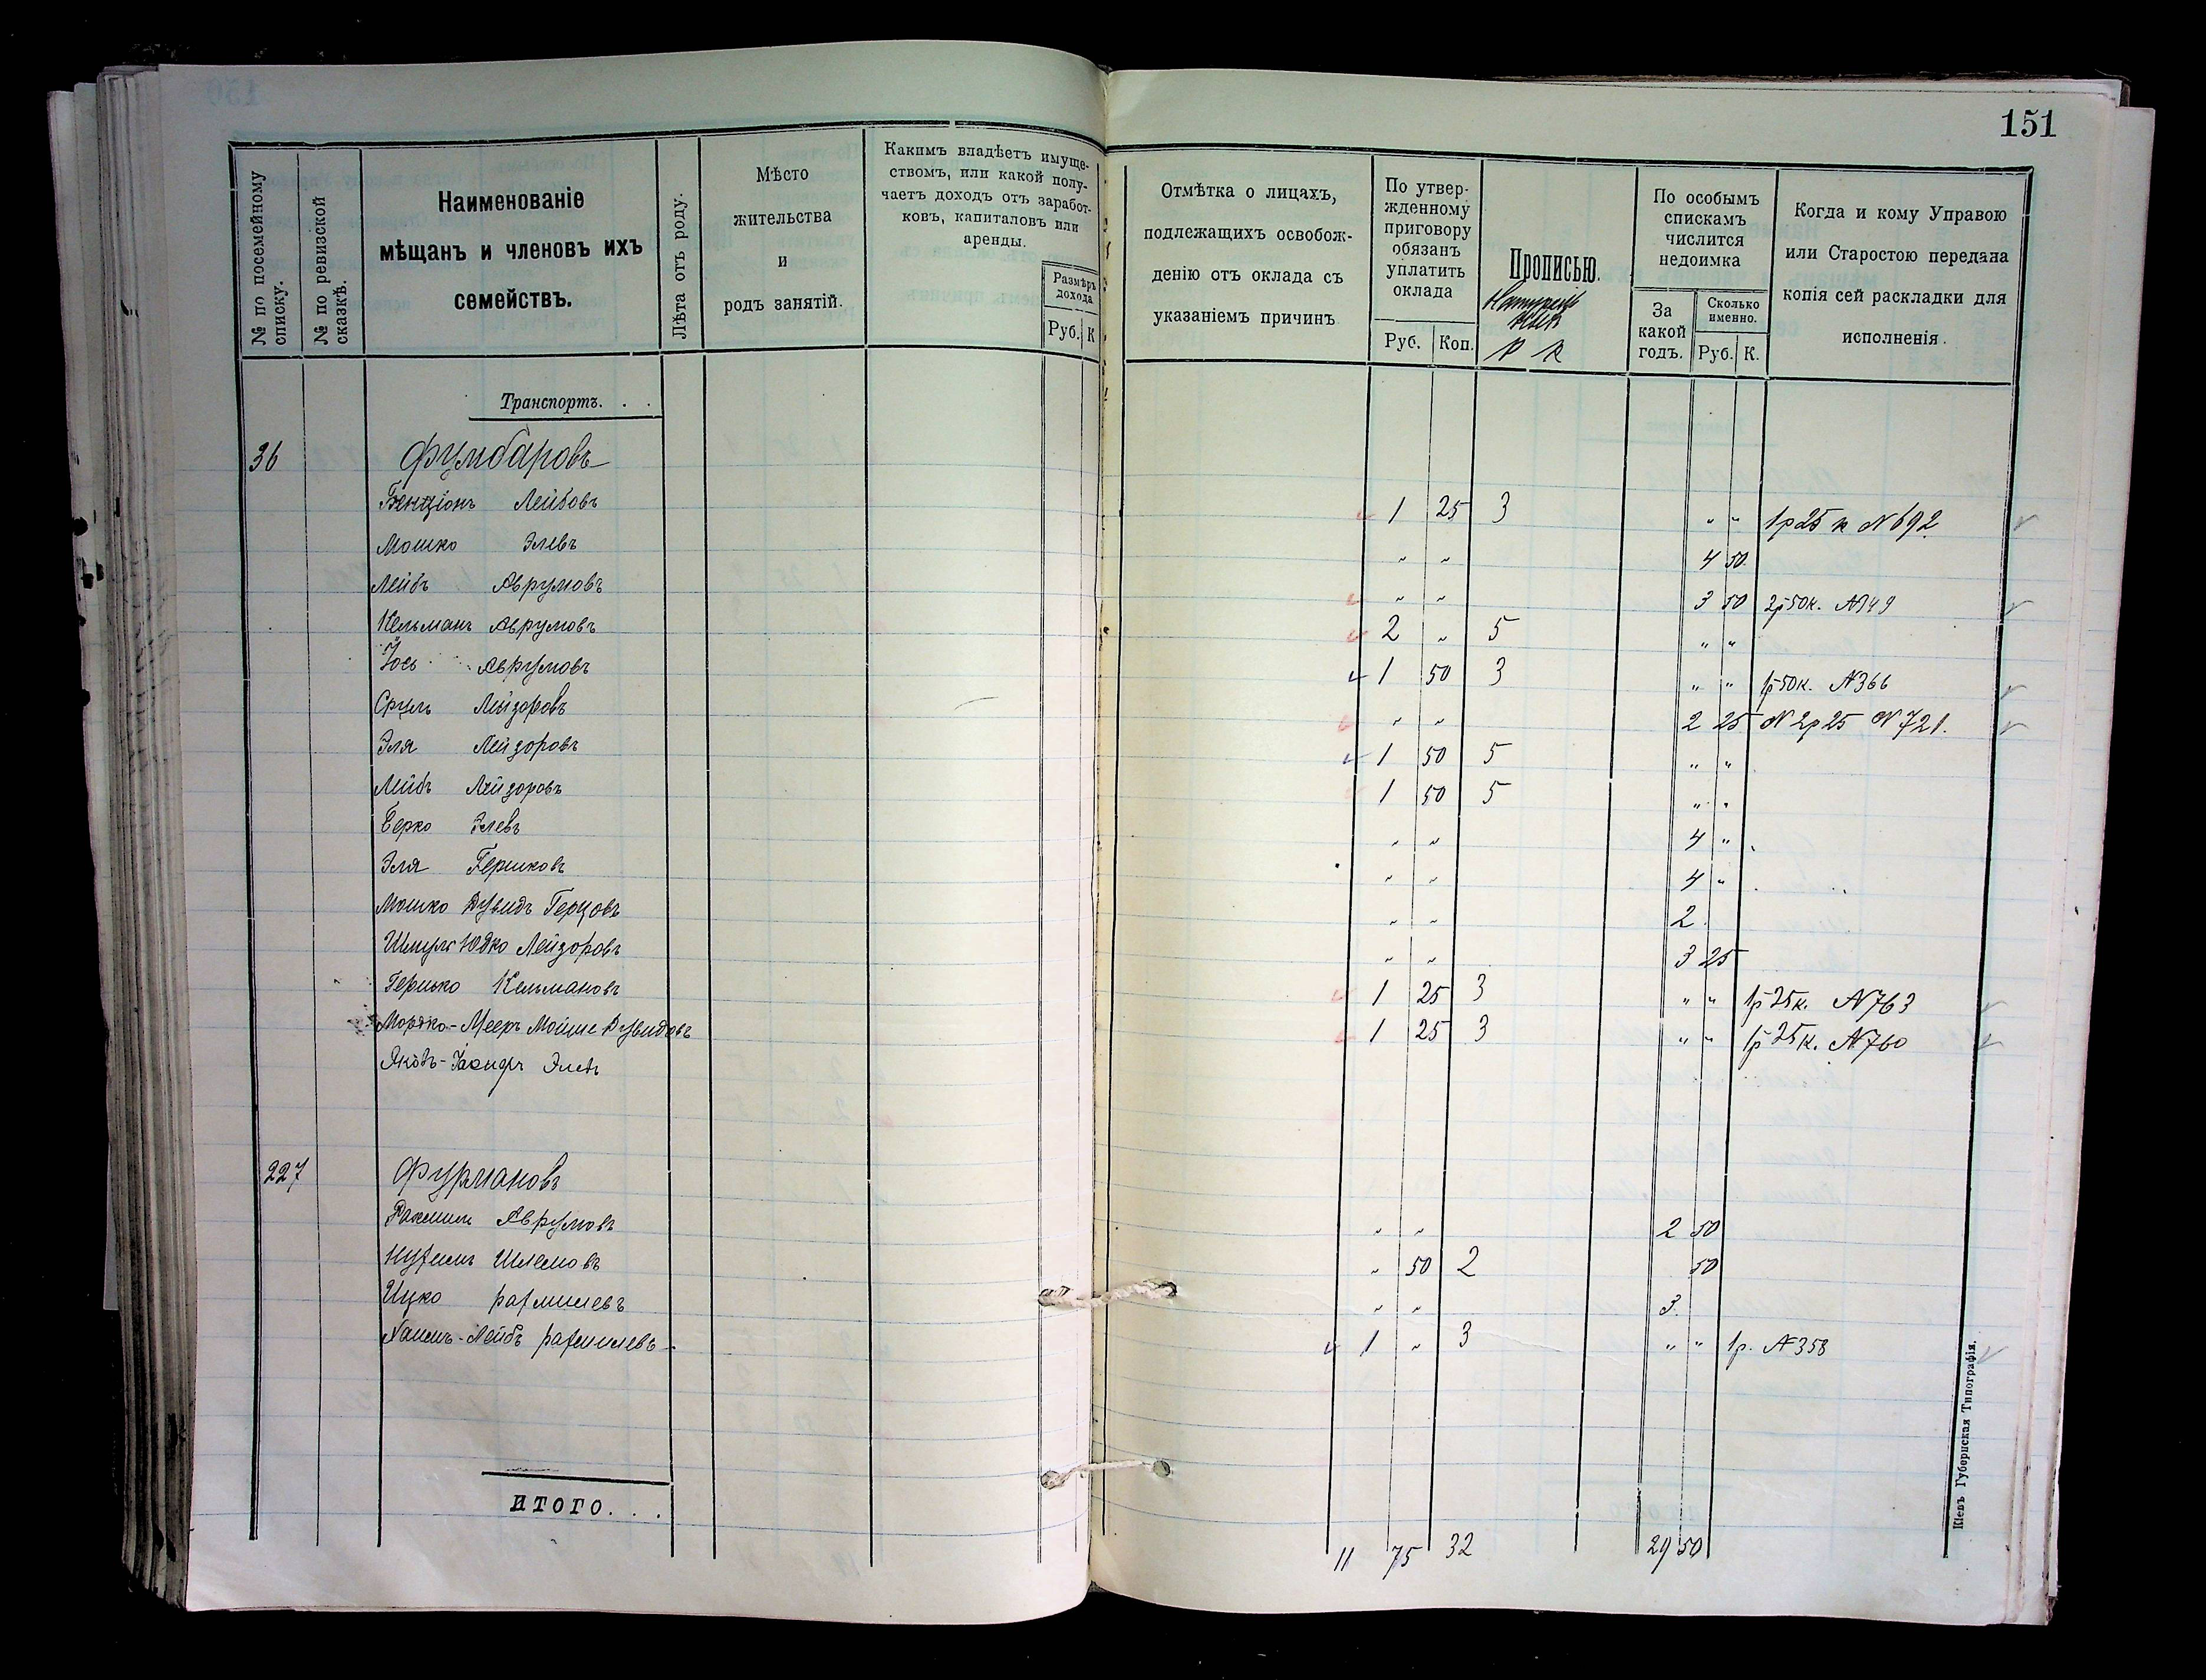 151
№ по посемейному списку.
№ по ревизской сказкѣ.
Наименованіе
мѣщанъ и членовъ ихъ
семействъ.
Лѣта отъ роду.
Мѣсто
жительства
и
родъ занятій.
Какимъ владѣетъ имуще-
ствомъ, или какой полу-
чаетъ доходъ отъ заработ-
ковъ, капиталовъ или
аренды.
Размѣръ
дохода
Руб. К
Отмѣтка о лицахъ,
подлежащихъ освобож-
денію отъ оклада съ
указаніемъ причинъ
По утвер-
жденному
приговору
обязанъ
уплатить
оклада
Руб. Коп.
Прописью.
Р К
По особымъ
спискамъ
числится
недоимка
За
какой
годъ.
Сколько
именно.
Руб. К.
Когда и кому Управою
или Старостою передана
копія сей раскладки для
исполненія.
Транспортъ. . .
36 Фумбаровъ
Бенціонъ Лейбовъ 1 25 3 " " 1р 25 к N 692
Мошко Элевъ " " 4 50
Лейбъ Аврумовъ " " 3 50 2р 50к. N 149
Кельманъ Аврумовъ 2 " 5 " "
Іось Аврумовъ 1 50 3 " " 1р 50к. N 366
Сруль Лейзоровъ " " 2 25 N 2р 25 N 721.
Эля Лейзоровъ 1 50 5 " "
Лейбъ Лейзоровъ 1 50 5 " "
Берко Элевъ " " 4 "
Эля Гершковъ " " 4 "
Мошко Дувидъ Герцовъ " " 2
Шмуль Юдко Лейзоровъ " " 3 25
Гершко Кельмановъ 1 25 3 " " 1р 25к. N 763
Мордко-Мееръ Мойше Дувидовъ 1 25 3 " " 1р 25к. N 760
Яковъ-Іосифъ Элевъ
227 Фурмановъ
Рахмиль Аврумовъ " " 2 50
Нухимъ Шлемовъ " 50 2 50
Ицко Рахмилевъ " " 3
Хаимъ-Лейбъ Рахмилевъ 1 " 3 " " 1р. N 358
ИТОГО. . .
11 75 32 29 50
Кіевъ Губернская Типографія.